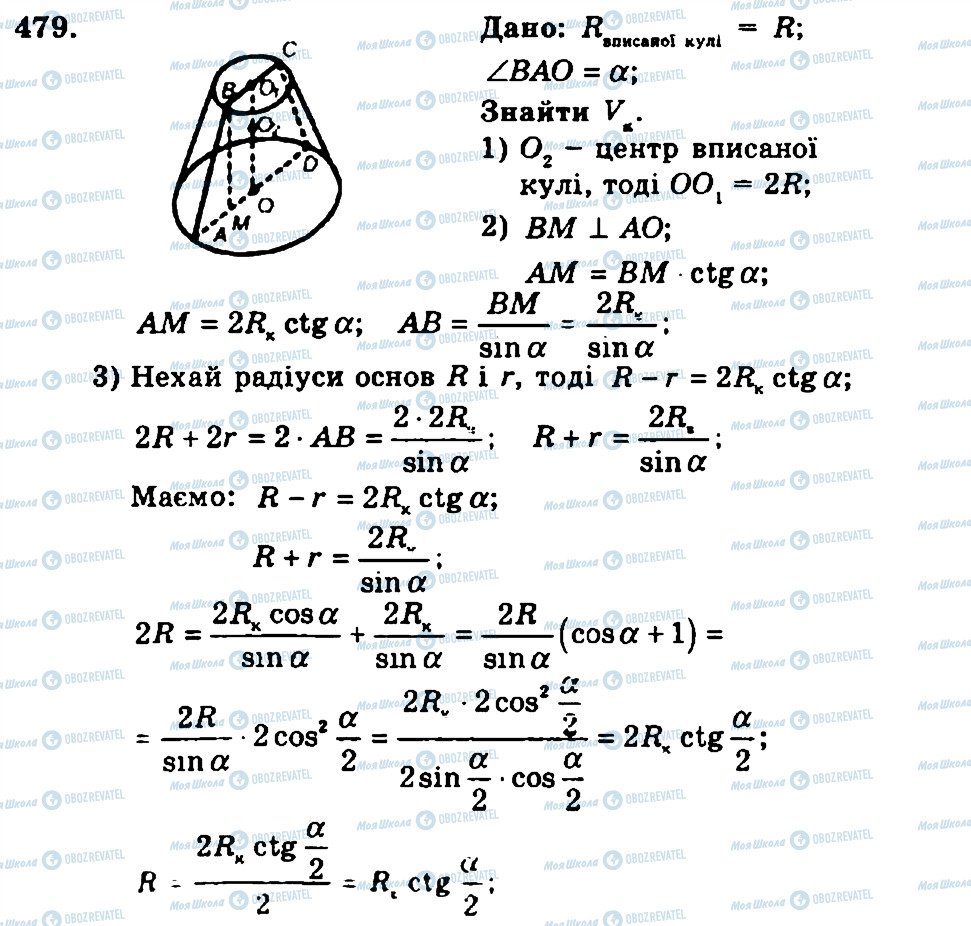 479.
Дано: R вписаної кулі = R;
∠BAO = α;
Знайти Vₖ.
1) O₂ – центр вписаної
кулі, тоді OO₁ = 2R;
2) BM ⊥ AO;
AM = BM · ctg α;
AM = 2Rₖ ctg α; AB = BM / sin α = 2Rₖ / sin α;
3) Нехай радіуси основ R і r, тоді R – r = 2Rₖ ctg α;
2R + 2r = 2 · AB = 2 · 2Rₖ / sin α; R + r = 2Rₖ / sin α;
Маємо: R – r = 2Rₖ ctg α;
R + r = 2Rₖ / sin α;
2R = 2Rₖ cos α / sin α + 2Rₖ / sin α = 2R / sin α (cos α + 1) =
= 2R / sin α · 2cos² α/2 = 2Rₖ · 2cos² α/2 / 2sin α/2 · cos α/2 = 2Rₖ ctg α/2;
R = 2Rₖ ctg α/2 / 2 = Rₖ ctg α/2;
C
B O₁
O₂
D
O
M
A
Моя Школа OBOZREVATEL